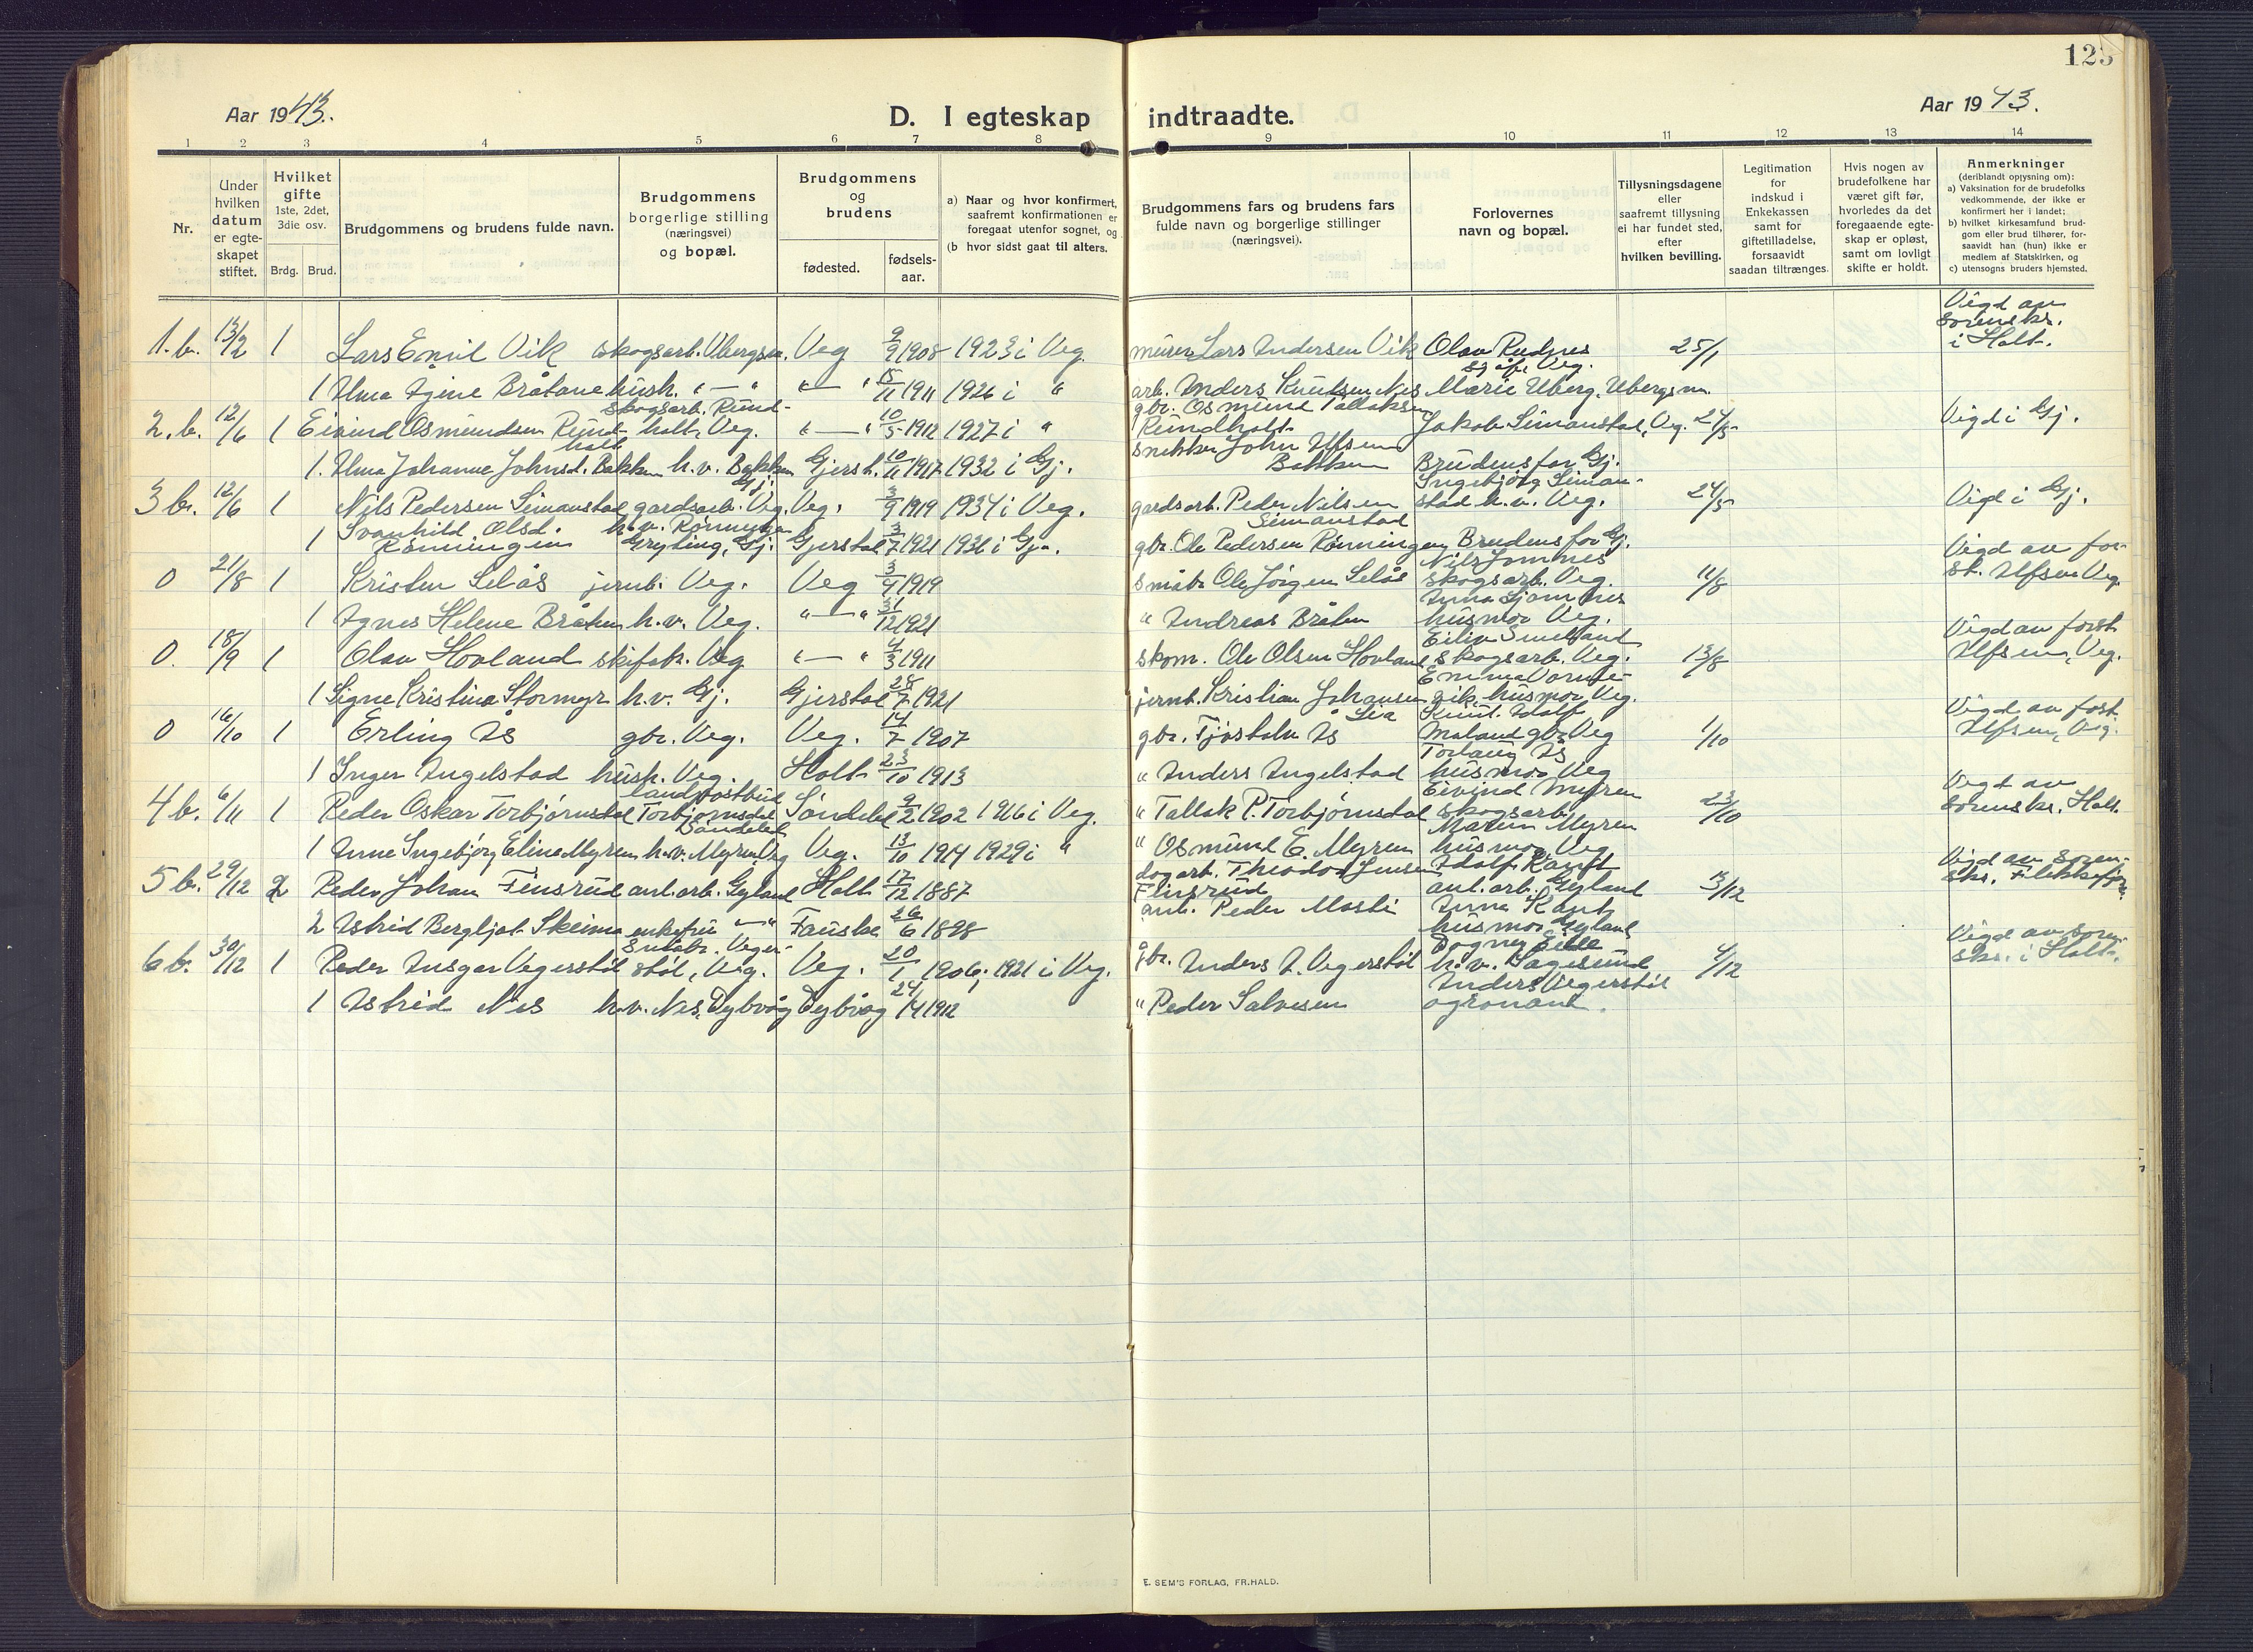 123
Aar 1943.
D. I egteskap indtraadte.
Aar 1943.
1 2 3 4 5 6 7 8 9 10 11 12 13 14
Nr.
Under hvilken datum er egteskapet stiftet.
Hvilket gifte 1ste, 2det, 3die osv.
Brdg. Brud.
Brudgommens og brudens fulde navn.
Brudgommens borgerlige stilling (næringsvei) og bopæl.
Brudgommens og brudens
fødested.
fødselsaar.
a) Naar og hvor konfirmert, saafremt konfirmationen er foregaat utenfor sognet, og
(b hvor sidst gaat til alters.
Brudgommens fars og brudens fars fulde navn og borgerlige stillinger (næringsvei).
Forlovernes navn og bopæl.
Tillysningsdagene eller saafremt tillysning ei har fundet sted, efter hvilken bevilling.
Legitimation for indskud i Enkekassen samt for giftetilladelse, forsaavidt saadan tiltrænges.
Hvis nogen av brudefolkene har været gift før, hvorledes da det foregaaende egteskap er opløst, samt om lovligt skifte er holdt.
Anmerkninger (deriblandt opjysning om):
a) Vaksination for de brudefolks vedkommende, der ikke er konfirmert her i landet;
b) hvilket kirkesamfund brudgom eller brud tilhører, forsaavidt han (hun) ikke er medlem av Statskirken, og
c) utensogns bruders hjemsted.
1.b. 13/2 1 Lars Emil Vik skogsarb. Ubergsm. Veg 9/9 1908 1923 i Veg. murer Lars Andersen Vik Olav Rudnes sjåf. Veg. 25/1 Vigd av sorenskr. i Holt.
1 Alma Agine Bråtane hush. " — " " — " 15/11 1911 1926 i " arb. Anders Knutsen Nes Marie Uberg, Ubergsm.
2.b. 12/6 1 Eivind Osmundsen Rundholt skogsarb. Rundholt, Veg. " — " 10/5 1912 1927 i " gbr. Osmund Tallaksen Rundholt Jakob Simonstad, Veg. 24/5 Vigd i Gj.
1. Alma Johanne Johnsd. Bakken h.v. Bakken Gj. Gjerst. 10/11 1917 1932 i Gj. snekker John Alfsen Bakken Brudens far Gj.
3 b. 12/6 1 Nils Pedersen Simonstad gardsarb. Veg. Veg. 3/9 1919 1934 i Veg. gardsarb. Peder Nilsen Simonstad Ingebjørg Simonstad h.v. Veg. 24/5 Vigd i Gj.
1 Svanhild Olsd. Rønningen h.v. Rønningen Gryting, Gj. Gjerstad 3/7 1921 1936 i Gj. gbr. Ole Pedersen Rønningen, Brudens far Gj.
0 21/8 1 Kristen Selås jernb. Veg. Veg 3/4 1919 småbr. Ole Jörgen Selås skogsarb. Veg. 11/8 Vigd av forst. Alfsen Veg.
1 Agnes Helene Bråten h.v. Veg. " — " 31/12 1921 " Andreas Bråten husmor Veg.
0. 18/9 1 Olav Hovland skifabr. Veg " — " 4/3 1911 skom. Ole Olsen Hovland skogsarb. Veg. 13/8 Vigd av forst. Alfsen, Veg.
1 Signe Kristina Stormyr h.v. Gj. Gjerstad 28/7 1921 jernb. Kristian Johansen Lia husmor Veg.
0 16/10 1 Erling Ås gbr. Veg. Veg. 14/7 1907 gbr. Tjøstolv Ås Knut Adolf Moland gbr. Veg 1/10 Vigd av forst. Alfsen, Veg.
1 Inger Angelstad hush. Veg. Holt 23/10 1913 " Anders Angelstad Torlaug Ås husmor Veg
4 b. 6/11 1 Peder Oskar Torbjørnsdal landpostbud Torbjørnsdal Søndeled Søndeled 9/2 1902 1916 i Veg. " Tallak P. Torbjørnsdal Eivind Myren skogsarb. 23/10 Vigd av sorenskr. Holt.
1 Anne Ingebjørg Eline Myren h.v. Myren Veg Veg. 13/10 1914 1929 i " " Osmund E. Myren Maren Myren husmor Veg
5 b. 29/12 2 Peder Johan Finsrud anl.arb. Gyland Holt 17/12 1887 dagarb. Theodor Jensen Finsrud Adolf anl. arb. Gyland 13/12 Vigd av sorenskr. Flekkefjor.
2 Astrid Bergljot Skeima enkefru " — " Fauske 26/6 1898 anl. Peder Mosti Anna husmor Gyland
6 b. 30/12 1 Peder Ansgar Vegerstøl småbr. Vegerstøl, Veg. Veg. 20/1 1906; 1921 i Veg. gbr. Anders A. Vegerstøl Dagny h.v. Sagesund 4/12 Vigd av sorenskr. i Holt.
1 Astrid Nes h.v. Nes, Dybvåg Dybvåg 24/4 1912 " Peder Salvesen Anders Vegerstøl agronom.
E. SEM'S FORLAG, FR.HALD.